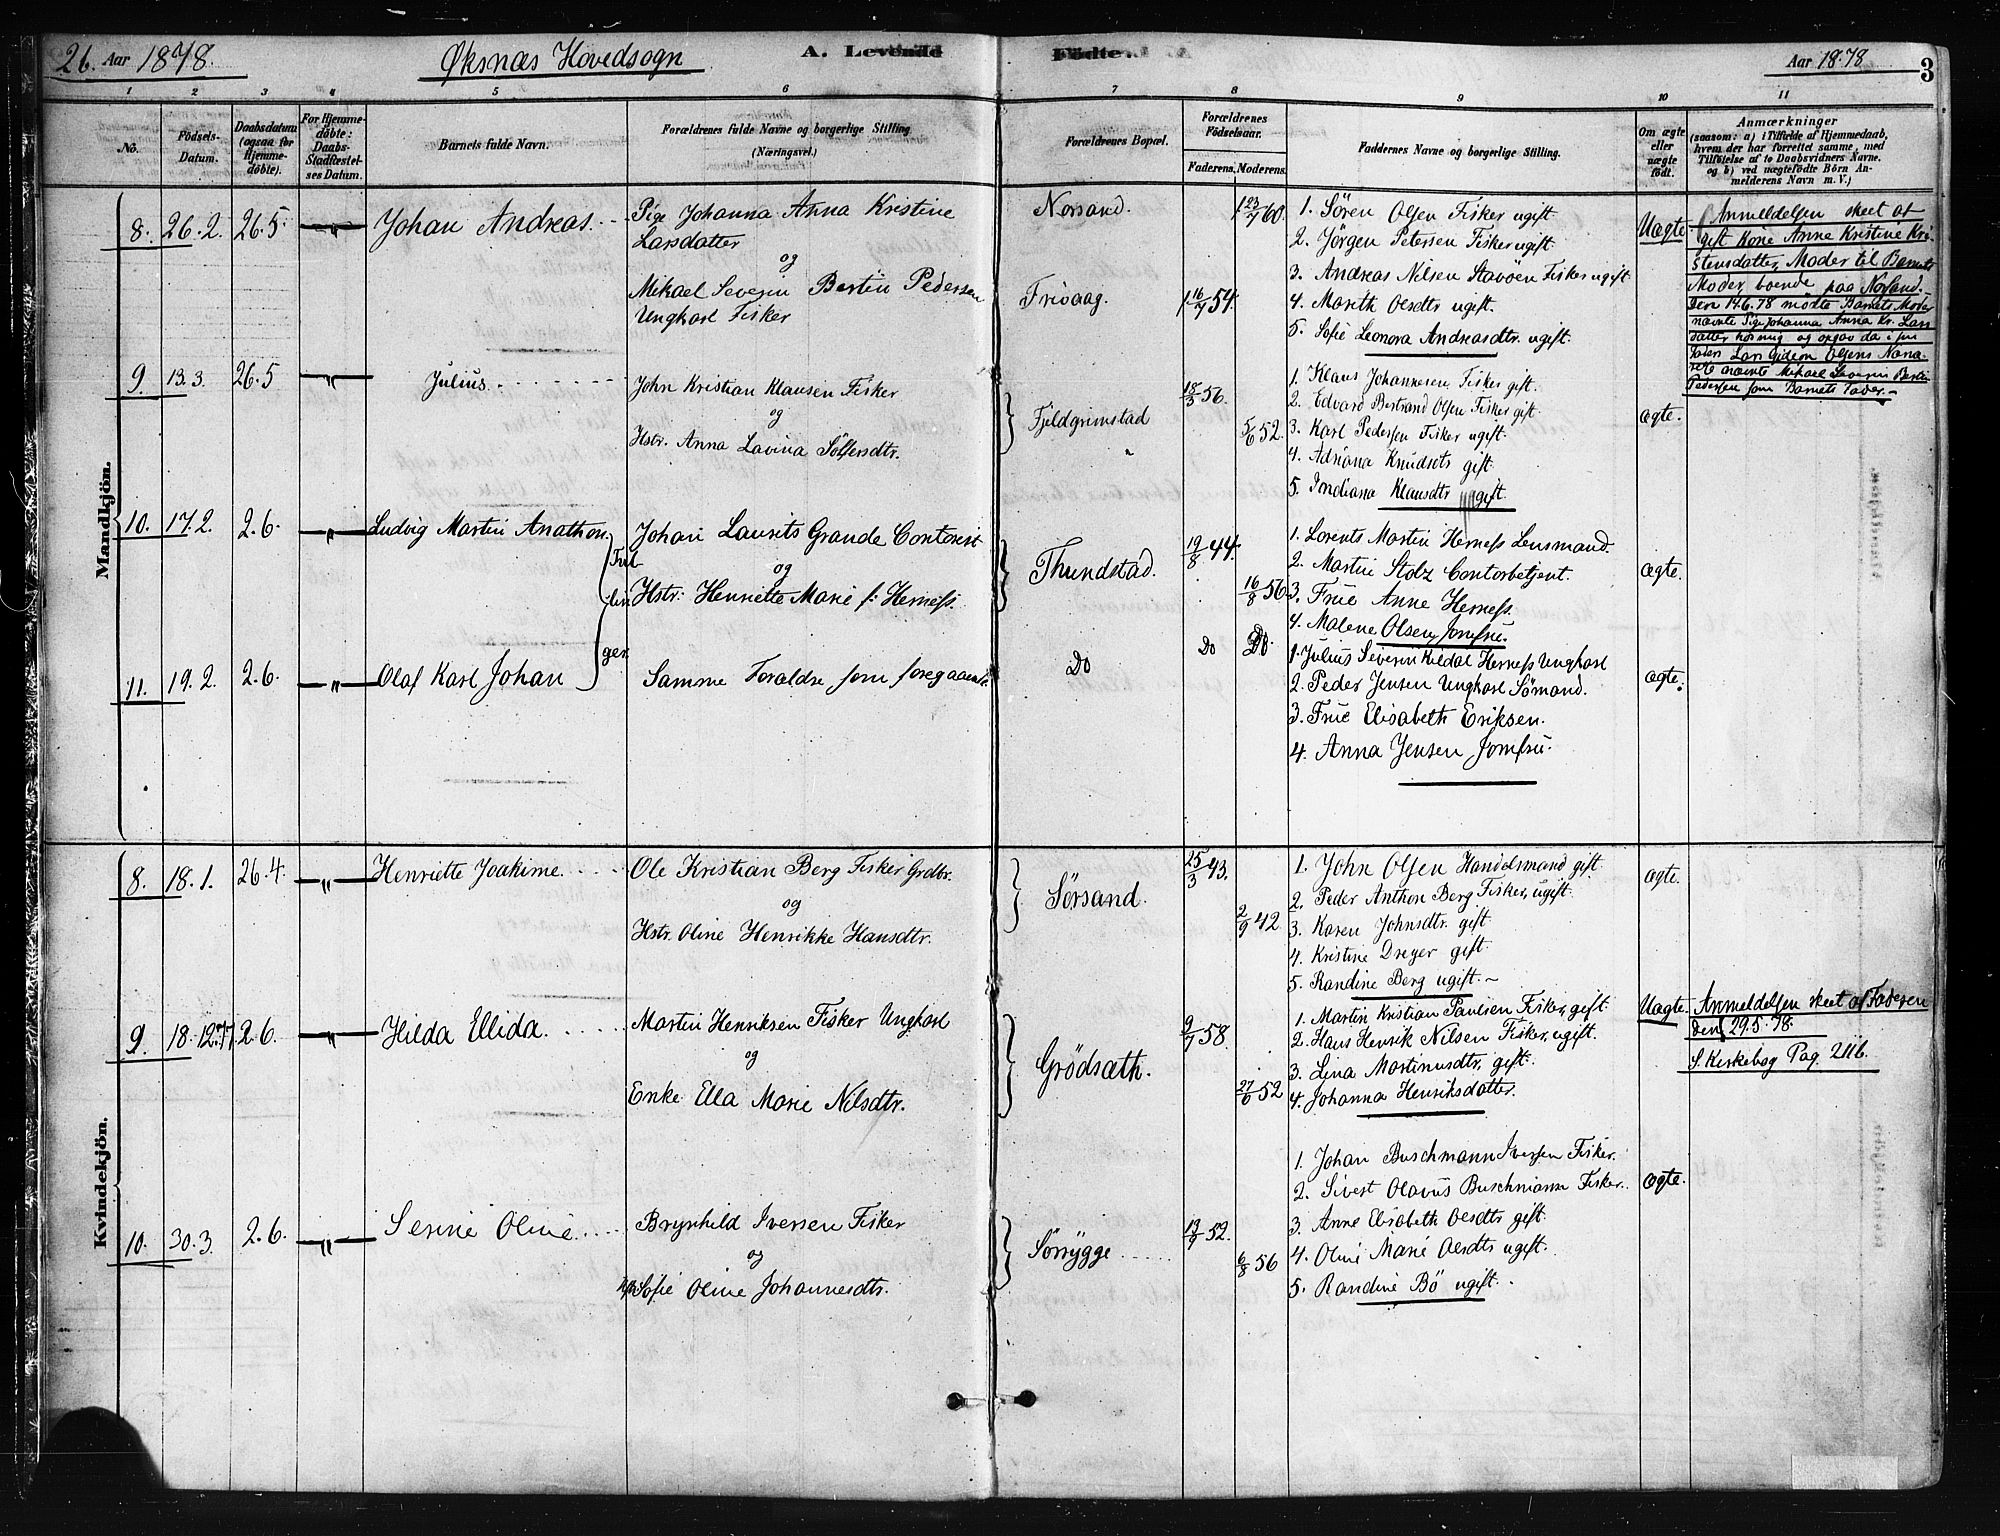 26. Aar 1878. Øksnæs Hovedsogn A. Levende Fødte. Aar 1878 3
1 2 3 4 5 6 7 8 9 10 11
No. Födsels-Datum. Daabsdatum (ogsaa for Hjemmedöbte). For Hjemmedöbte: Daabs-Stadfæstelses Datum. Barnets fulde Navn. Forældrenes fulde Navne og borgerlige Stilling (Næringsvei.) Forældrenes Bopæl. Forældrenes Födselsaar. Faderens. Moderens. Faddernes Navne og borgerlige Stilling. Om ægte eller uægte födt. Anmærkninger (saasom: a) i Tilfælde af Hjemmedaab, hvem der har forrettet samme, med Tilföielse af to Daabsvidners Navne. og b) ved uægtefödte Börn Anmelderens Navn m. V.)
Mandkjön.
8. 26.2. 26.5. —"— Johan Andreas. Pige Johanna Anna Kristine
Larsdatter
og
Mikael Severin Bertin Pedersen
Ungkarl Fisker
Norsand. 23/7 60.
Frisaag. 16/7 54.
1. Sören Olsen Fisker ugift.
2. Jörgen Petersen Fisker ugift.
3. Andreas Nilsen Stavöen Fisker ugift
4. Mareth Olsdtr ugift.
5. Sofie Leonora Andreasdtr. ugift.
Uægte.
Anmeldelsen skeet af
gift Kone Anne Kristine Kri-
stensdatter, Moder til Barnets
Moder, boende paa Norsand.
Den 14.6.78 mödte Barnets Moder
nævnte Pige Johanna Anna Kr. Lars
datter hos mig og opgav da i sin
Fader Lars Gideon Olsens Nærvæ-
relse nævnte Mikael Severin Bertin
Pedersen som Barnets Fader.
9 13.3. 26.5 —"— Julius. John Kristian Klausen Fisker
og
Hstr. Anna Lavina Sölfersdtr.
Fjeldgrimstad 18/3 56. 5/6 52.
1. Klaus Johannesen Fisker gift.
2. Edvard Bertrand Olsen Fisker gift.
3. Karl Pedersen Fisker ugift.
4. Adriana Knudsdtr gift.
5. Indiana Klausdtr gift.
ægte.
10. 17.2. 2.6. —"— Ludvig Martin Anathon. Johan Laurits Grande Contorist
og
Hstr. Henriette Marie f: Herness.
Thundstad. 19/8 44. 16/8 56
1. Lorents Martin Herness Lensmand.
2. Martin Stolz Contorbetjent.
3. Frue Anne Herness.
4. Malene Olsen, Jomfru.
ægte.
11. 19.2. 2.6. —"— Olaf Karl Johan Samme Foraldre som foregaaende.
Do Do Do.
1. Julius Severin Kildal Herness Ungkarl
2. Peder Jensen Ungkarl Sömand.
3. Frue Elisabeth Eriksen.
4. Anna Jensen Jomfru.
ægte.
Kvindekjön.
8. 18.1. 26.4. —"— Henriette Joakime. Ole Kristian Berg Fisker Grdbr.
og
Hstr. Oline Henrikke Hansdtr.
Sörsand. 25/3 43. 2/9 42
1. John Olsen Handelsmand gift.
2. Peder Anthon Berg Fisker, ugift.
3. Karen Johnsdtr. gift.
4. Kristine Dreyer gift.
5. Randine Berg ugift.
ægte.
9. 18.12.77. 2.6. —"— Hilda Ellida. Martin Henriksen Fisker Ungkarl
og
Enke Ella Marie Nilsdtr.
Grödsæth. 9/7 58. 27/6 52
1. Martin Kristian Paulsen Fisker, gift.
2. Hans Henrik Nilsen Fisker, ugift.
3. Lina Martinusdtr, gift.
4. Johanna Henriksdatter.
Uægte.
Anmeldelsen skeet af Faderen
den 29.5.78.
S. Kirkebog Pag. 211b.
10. 30.3. 2.6. —"— Senie Oline. Brynhild Iversen Fisker
og
Sofie Oline Johannesdtr.
Sörrygge 13/9 52. 6/8 56
1. Johan Buschmann Iversen Fisker.
2. Sivert Olavus Buschmann Fisker.
3. Anne Elisabeth Olsdtr gift.
4. Oline Marie Olsdtr ugift.
5. Randine Bö ugift.
ægte.